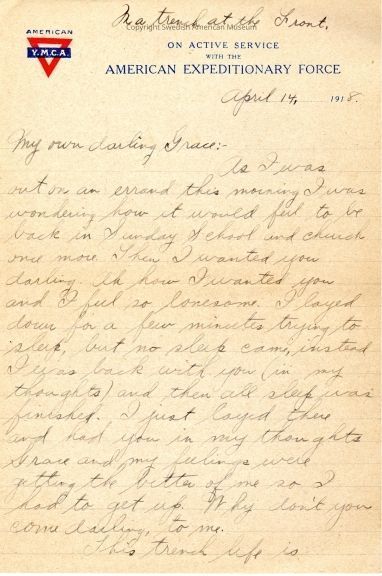 In a trench at the Front.
Copyright Swedish American Museum
AMERICAN
Y.M.C.A.
ON ACTIVE SERVICE
WITH THE
AMERICAN EXPEDITIONARY FORCE
April 14, 1918.
My own darling Grace:-
As I was
out on an errand this morning I was
wondering how it would feel to be
back in Sunday School and church
once more. Then I wanted you
darling. Oh how I wanted you
and I feel so lonesome. I layed
down for a few minutes trying to
sleep, but no sleep came, instead
I was back with you (in my
thoughts) and then all sleep was
finished. I just layed there
and had you in my thoughts
Grace and my feelings were
getting the better of me so I
had to get up. Why don't you
come darling, to me.
This trench life is